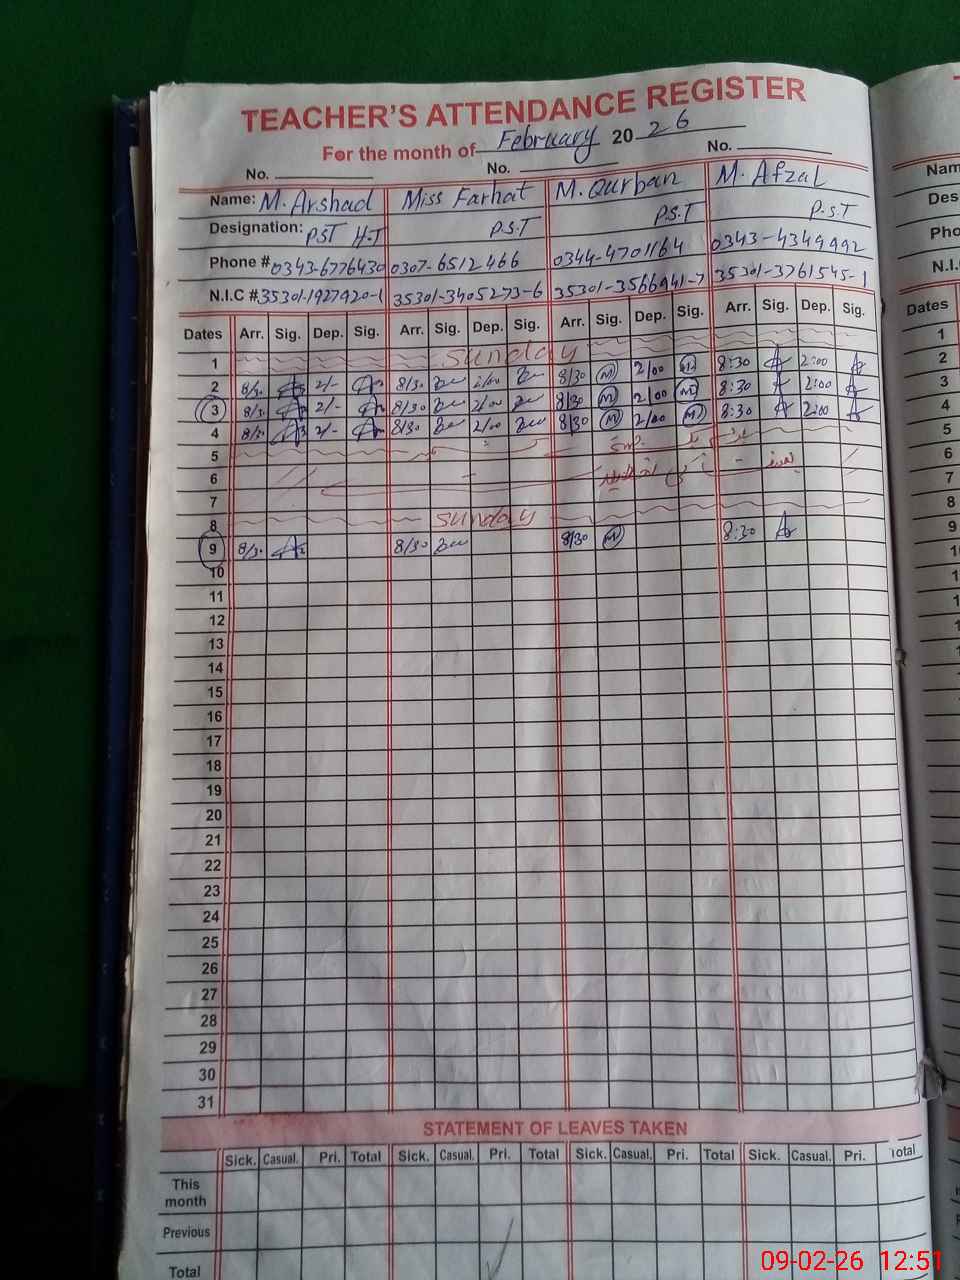 TEACHER'S ATTENDANCE REGISTER
For the month of February 2026
No. No. No.
Name: M. Arshad Miss Farhat M. Qurban M. Afzal
Designation: PST H.T P.S.T P.S.T P.S.T
Phone # 0343-6776430 0307-6512466 0344-4701164 0343-4349992
N.I.C # 35301-1927920-1 35301-3405273-6 35301-3566941-7 35301-3761545-1
Dates Arr. Sig. Dep. Sig. Arr. Sig. Dep. Sig. Arr. Sig. Dep. Sig. Arr. Sig. Dep. Sig.
1 Sunday
2 8/30 2/- 8/30 2/00 8/30 M 2/00 M 8:30 2:00
3 8/30 2/- 8/30 2/00 8/30 M 2/00 M 8:30 2:00
4 8/30 2/- 8/30 2/00 8/30 M 2/00 M 8:30 2:00
5
6
7
8 Sunday
9 8/30 8/30 8/30 M 8:30
10
11
12
13
14
15
16
17
18
19
20
21
22
23
24
25
26
27
28
29
30
31
STATEMENT OF LEAVES TAKEN
Sick. Casual. Pri. Total Sick. Casual. Pri. Total Sick. Casual. Pri. Total Sick. Casual. Pri. Total
This
month
Previous
Total
Nam
Des
Pho
N.I.
Dates
1
2
3
4
5
6
7
8
9
09-02-26 12:51